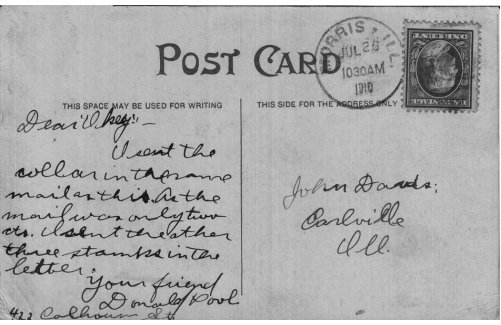 POST CARD
MORRIS, ILL.
JUL 26
10 30 AM
1910
THIS SPACE MAY BE USED FOR WRITING
THIS SIDE FOR THE ADDRESS ONLY
Dear
I sent the
collar in the same
mail as this. As the
mail was only two
cts. I sent the other
three stamps in the
letter.
Your friend
Donald
422 Calhoun St.
John Davis.
Carlville
Ill.